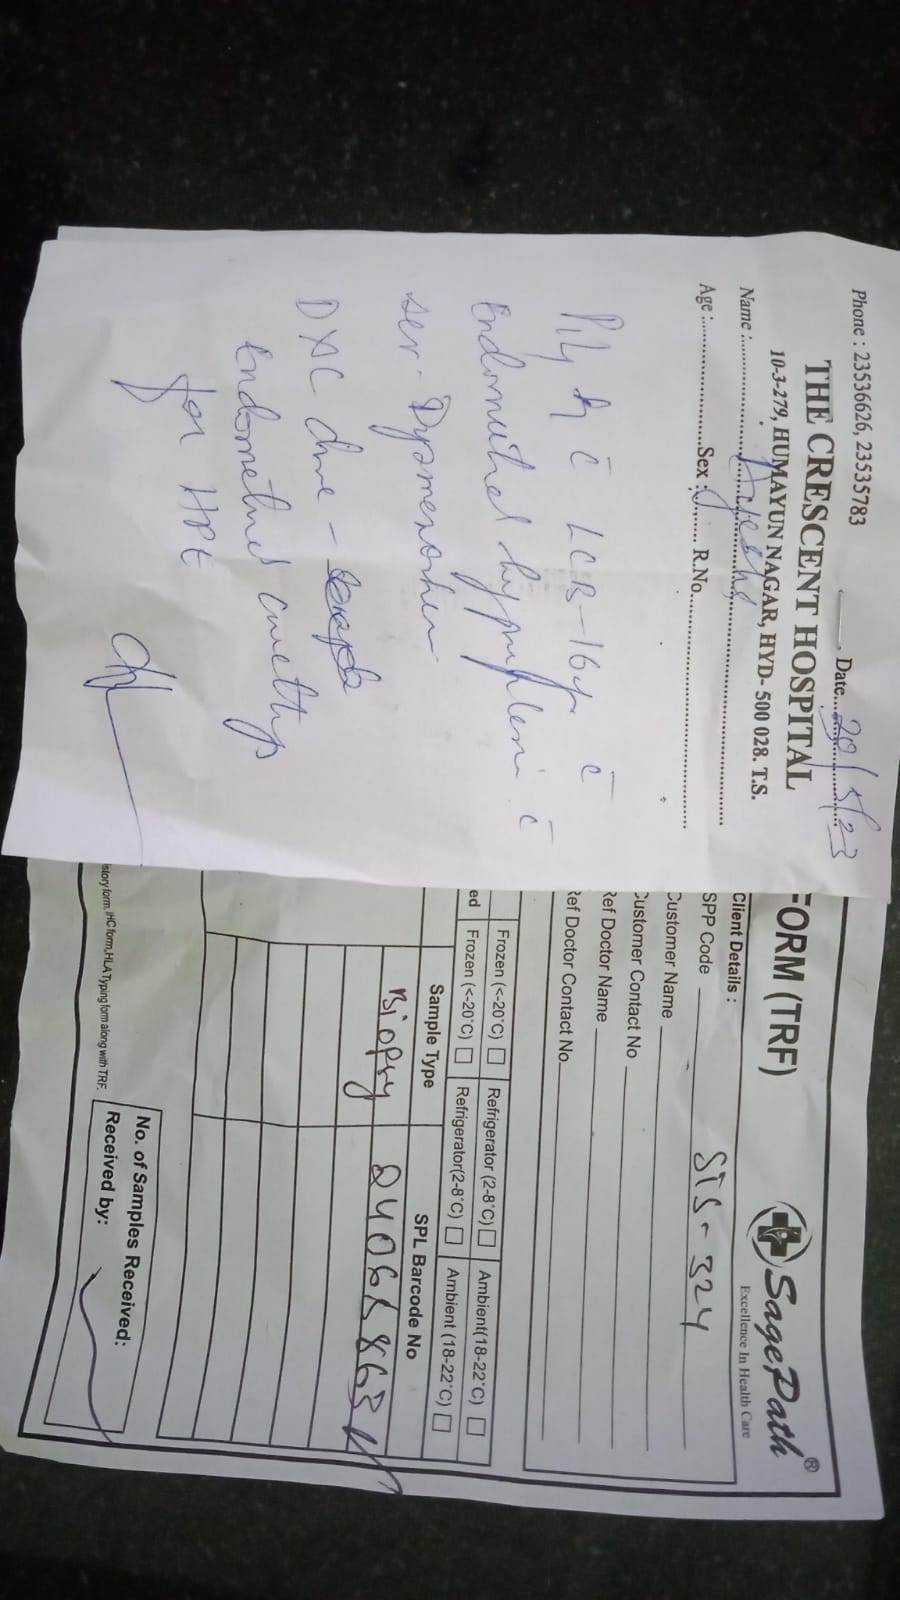 Phone : 23536626, 23535783
Date....20/5/23
THE CRESCENT HOSPITAL
10-3-279, HUMAYUN NAGAR, HYD- 500 028. T.S.
Name :....Ayesha....
Age :....Sex :....R.No....
c̄ LCB - 16yr c̄
Endometrial c̄
Dysmenorrhea
D&C done -
Endometrial
for HPE
FORM (TRF)
SagePath®
Excellence In Health Care
Client Details :
SPP Code STS - 324
Customer Name
Customer Contact No
Ref Doctor Name
Ref Doctor Contact No.
Frozen (<-20°C) Refrigerator (2-8°C) Ambient(18-22°C)
ed Frozen (<-20°C) Refrigerator(2-8°C) Ambient (18-22°C)
Sample Type SPL Barcode No
Biopsy
No. of Samples Received:
Received by:
story form, IHC form, HLA Typing form along with TRF.